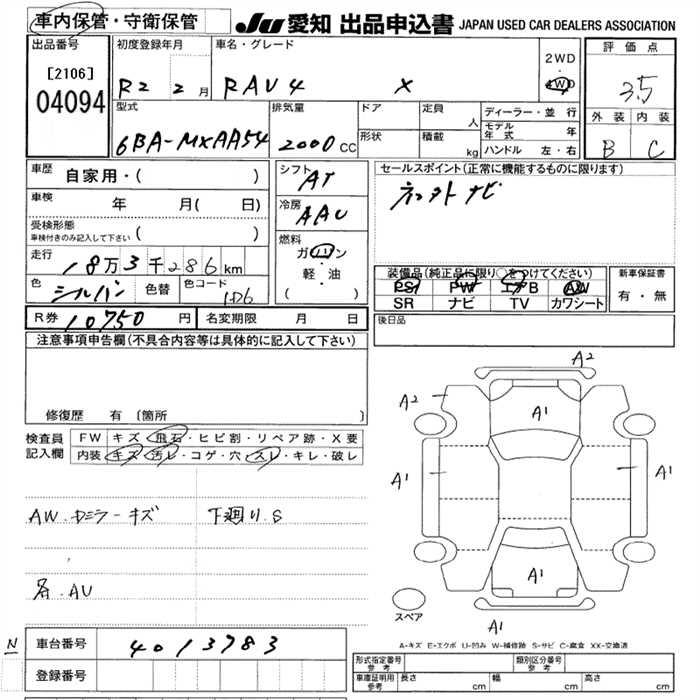 車内保管・守衛保管
JU 愛知 出品申込書 JAPAN USED CAR DEALERS ASSOCIATION
出品番号
[2106]
04094
初度登録年月
R2 2月
車名・グレード
RAV4 X
2WD
・
4WD
評価点
3.5
外装 内装
B C
型式
6BA-MXAA54
排気量
2000CC
ドア
形状
定員 人
積載 kg
ディーラー・並行
モデル年式 年
ハンドル 左・右
車歴 自家用・( )
車検 年 月( 日)
受検形態
車検付きのみ記入して下さい ( )
走行 18万3千286km
色 シルバー 色替 色コード 1D6
シフト AT
冷房 AAC
燃料
ガソリン
・
軽・油
( )
セールスポイント(正常に機能するものに限ります)
ナビ
装備品(純正品に限り○をつけてください)
PS PW エアB AW
SR ナビ TV カワシート
新車保証書
有・無
R券 10750円 名変期限 月 日
後日品
注意事項申告欄(不具合内容等は具体的に記入して下さい)
修復歴 有〔箇所 〕
検査員記入欄
FW キズ・飛石・ヒビ割・リペア跡・X要
内装 キズ・汚レ・コゲ・穴・スレ・キレ・破レ
AW・ドミラーキズ
下廻り.S
各.AU
A2
A2
A1
A1
A1
A1
A1
スペア
A-キズ E-エクボ U-凹み W-補修跡 S-サビ C-腐食 XX-交換済
N
車台番号 4013783
登録番号
形式指定番号 参考
類別区分番号 参考
車庫証明用 参考 長さ cm 幅 cm 高さ cm